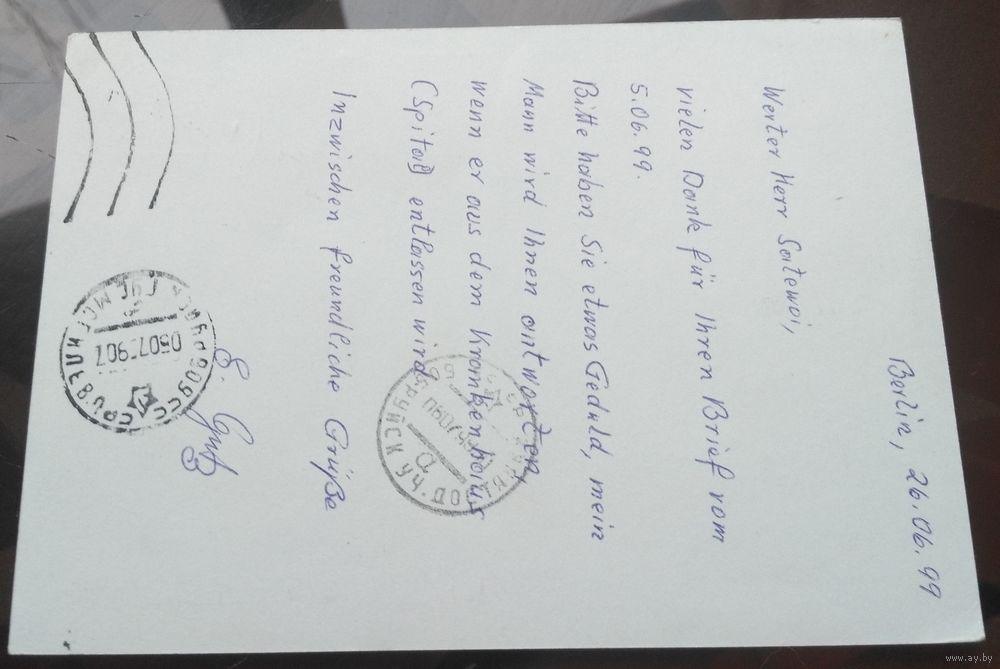 Berlin, 26.06.99
Werter Herr Satewoi,
vielen Dank für Ihren Brief vom
5.06.99.
Bitte haben Sie etwas Geduld, mein
Mann wird Ihnen antworten,
wenn er aus dem Krankenhaus
(Spital) entlassen wird.
Inzwischen freundliche Grüße
E.
УЧ. ДОС
a
www.ay.by